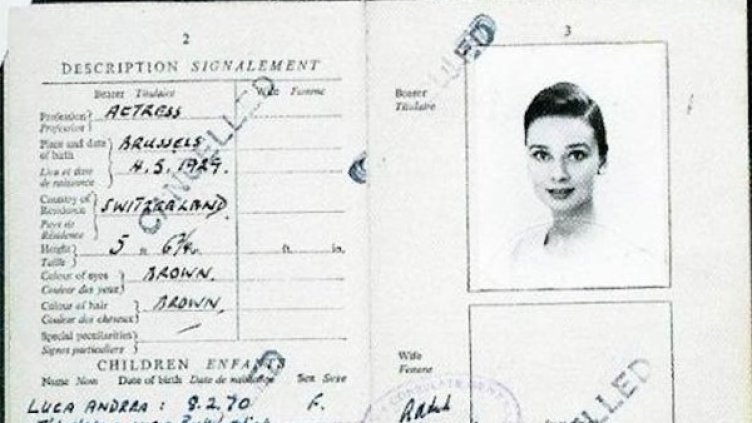 2
DESCRIPTION SIGNALEMENT
Bearer Titulaire Wife Femme
Profession } ACTRESS
Profession
Place and date } BRUSSELS
of birth
Lieu et date 4.5.1929.
de naissance
Country of } SWITZERLAND
Residence
Pays de
Résidence
Height } 5 ft. ft. in.
Taille
Colour of eyes } BROWN.
Couleur des yeux
Colour of hair } BROWN.
Couleur des cheveux
Special peculiarities
Signes particuliers
CHILDREN ENFANTS
Name Nom Date of birth Date de naissance Sex Sexe
LUCA ANDREA : 8.2.70 F.
CANCELLED
3
Bearer
Titulaire
Wife
Femme